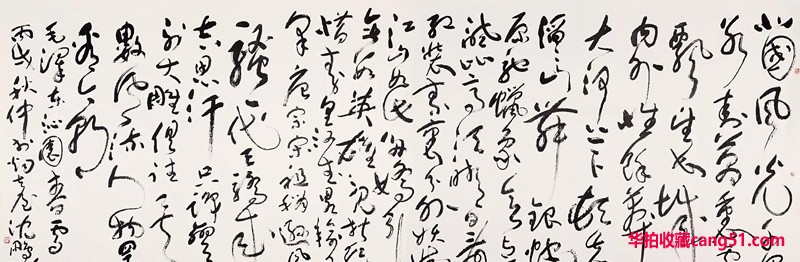 北国风光千里
飘望长城
内外惟余莽莽
大河上下顿失
滔滔山舞银蛇
原驰蜡象欲与
试比高须晴日看
红装素裹分外妖娆
江山如此多娇引
无数英雄竞折腰
惜秦皇汉武略输
唐宗宋祖稍逊风
骚一代天骄成
吉思汗只识弯弓
射大雕俱往矣
数风流人物还
看今朝
毛泽东沁园春雪
丙戌秋仲 沈鹏
华拍收藏cang31.com